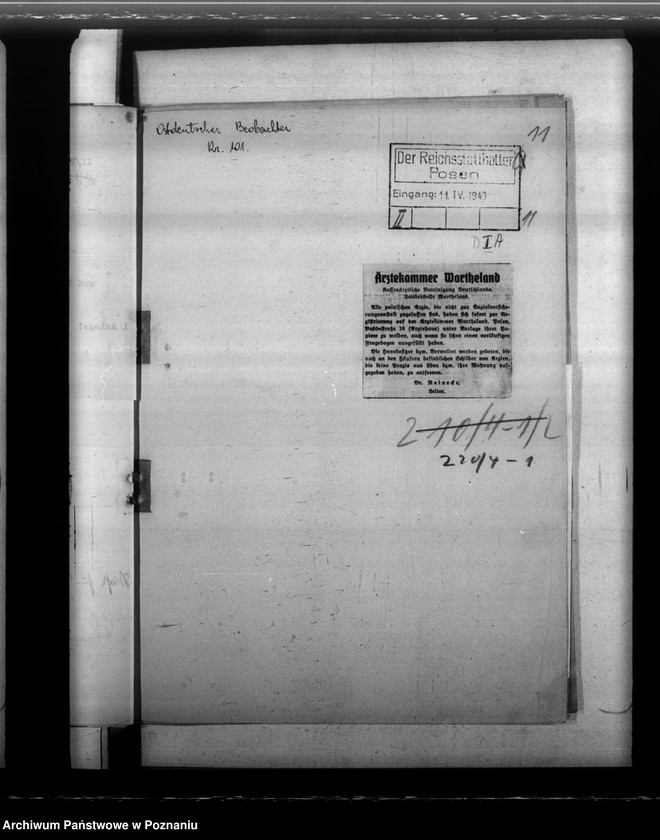 Ostdeutscher Beobachter
Nr. 101.
11
Der Reichsstatthalter
Posen
Eingang: 11. IV. 1941
II
11
D I A
Ärztekammer Wartheland
Kassenärztliche Vereinigung Deutschlands,
Landesstelle Wartheland.
Alle polnischen Ärzte, die nicht zur Sozialversiche-
rungsanstalt zugelassen sind, haben sich sofort zur Re-
gistrierung auf der Ärztekammer Wartheland, Posen,
16 (Ärztehaus) unter Vorlage ihrer Pa-
piere zu melden, auch wenn sie schon einen vorläufigen
Fragebogen ausgefüllt haben.
Die Hausbesitzer bzw. Verwalter werden gebeten, die
noch an den Häusern befindlichen Schilder von Ärzten,
die keine Praxis aus üben bzw. ihre Wohnung auf-
gegeben haben, zu entfernen.
Dr. Reinecke,
Leiter.
2 10/4-1/2
220/4-1
Archiwum Państwowe w Poznaniu